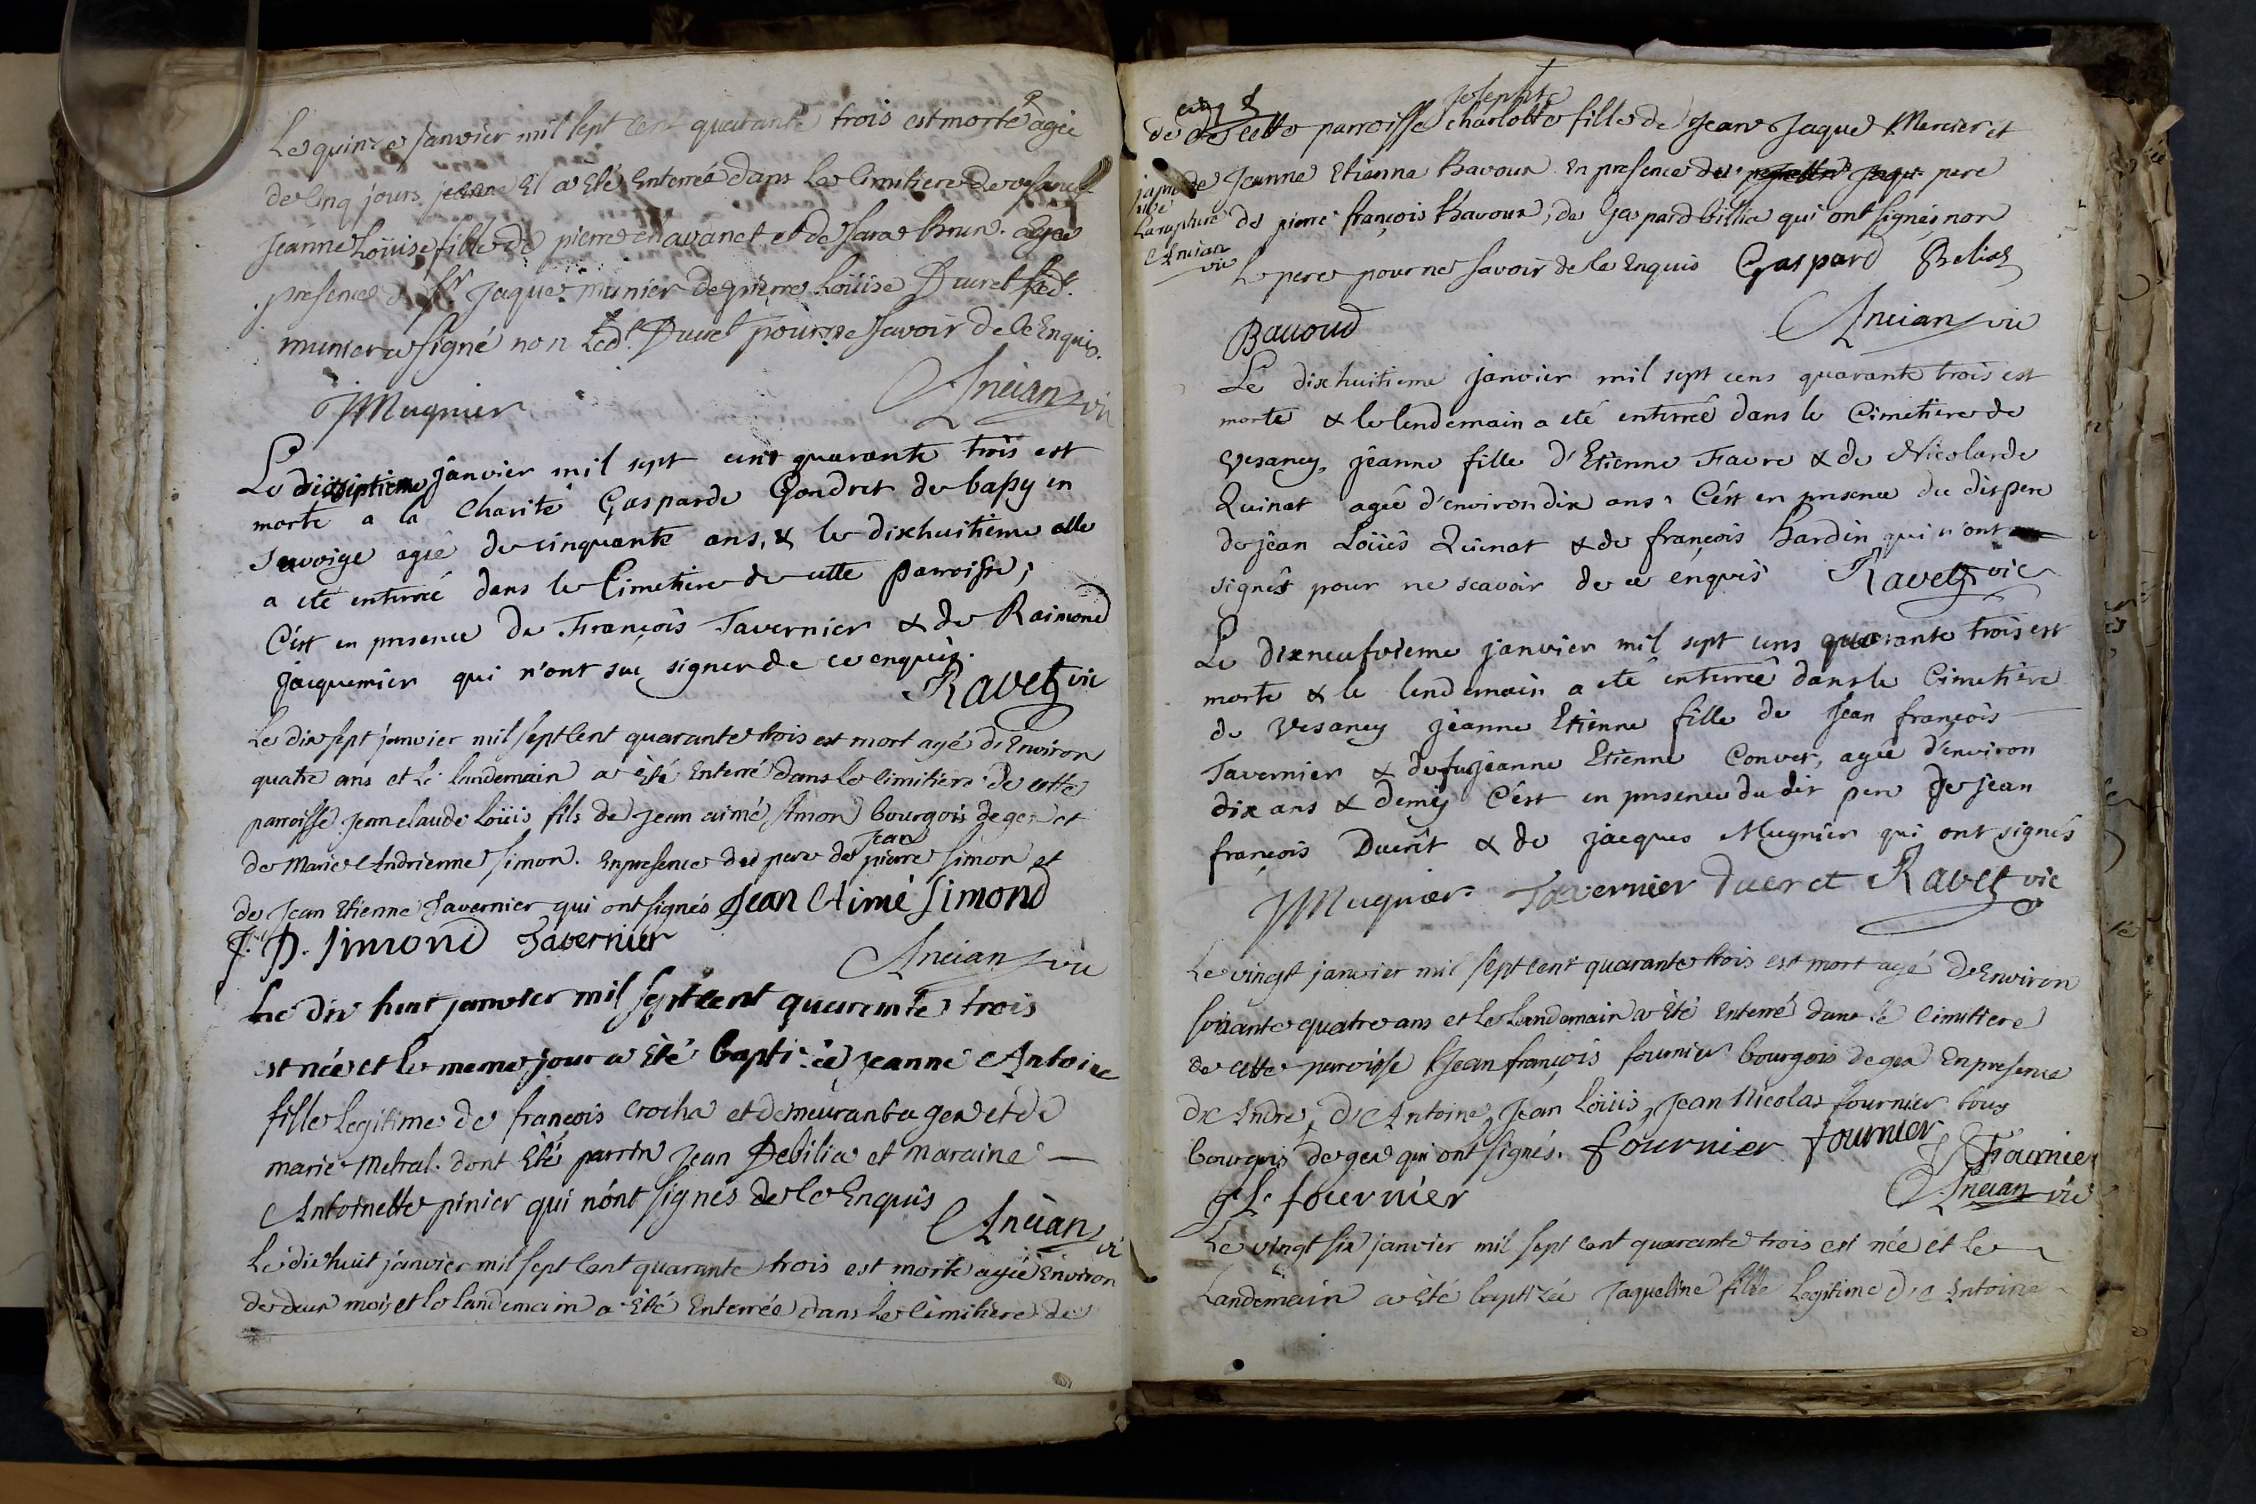 Le quinze Janvier mil sept cent quarante trois est morte agée
de cinq jours, Il a Eté Enterrée dans le Cimitiere de vesanci
Jeanne Loüise fille de pierre chavanet et de Sara brun.
presence Jaque munier de pierre Loüise Duret led.t
munier a signé non Led.t Duret pour ne savoir de Ce Enquis.
JMugnier Ancian vic
Le dixseptieme janvier mil sept cent quarante trois est
morte a la Charité Gasparde Gondret de bassy en
Savoiye agée de cinquante ans, & le dixhuitieme elle
a eté enterrée dans le Cimetiere de cette parroisse;
C'est en presence de François Tavernier & de Raimond
Jacquemier qui n'ont sue signer de ce enquis.
Ravet vic
Le dix sept janvier mil sept Cent quarante trois est mort agé d'Environ
quatre ans et Le landemain a Eté Enterré dans le Cimitiere de cette
parroisse Jean claude Loüis fils de Jean aimé Simon bourgois de gex et
de Marie Andrienne Simon. En presence du pere de Jean pierre Simon et
de Jean Etienne Tavernier qui ont signés Jean Aimé Simond
J. P. Simond Tavernier
Ancian vic
Le dix huit janvier mil sept cent quarante trois
est née et le meme jour a Eté baptisée Jeanne Antoine
fille legitime de françois crocha et demeurant a gex et de
marie Metral. dont Eté parrin Jean Debilia et maraine —
Antoinette pinier qui n'ont signés de Ce Enquis
Ancian vi
Le dix huit janvier mil sept Cent quarante trois est morte agée Environ
de deux mois et le landemain a Eté Enterrée dans le Cimitiere de
de cette parroisse josephte charlotte fille de Jean Jaque Mercier et
de Jeanne Etienne Bavoux. En presence du pere
de pierre françois Bavoux, de Gaspard billia qui ont signés non
Le pere pour ne savoir de Ce Enquis Gaspard Belia
japrouve
la rupture
Ancian
vic
Bavoud Ancian vic
Le dixhuitieme janvier mil sept cens quarante trois est
morte & le lendemain a eté enterrée dans le Cimetiere de
Vesancy, jeanne fille d'Etienne Favre & de Nicolarde
Quinat agée d'environ dix ans. C'est en presence du dit pere
de jean Loüis Quinat & de françois hardin qui n'ont
signés pour ne scavoir de ce enquis Ravet vic
Le dixneufvieme janvier mil sept cens quarante trois est
morte & le lendemain a eté enterrée dans le Cimetiere
de Vesancy jeanne Etienne fille de jean françois
Tavernier & de fue jeanne Etienne Conver, agée d'environ
dix ans & demy C'est en presence du dit pere de jean
françois Duerêt & de jacques Mugnier qui ont signés
JMugnier Tavernier Dueret Ravet vic
Le vingt janvier mil sept cent quarante trois est mort agé d'Environ
soixante quatre ans et Le Landemain a Eté Enterré dans le Cimitiere
de cette paroisse Jean françois fournier bourgois de gex En presence
De Andre, D'Antoine, Jean Loüis, Jean Nicolas fournier tous
bourgois de gex qui ont signés. fournier fournier J Fournier
J L. fournier Ancian vic
Le vingt six janvier mil sept cent quarante trois est née et le
Landemain a Eté baptizée Jaqueline fille Legitime d'Antoine